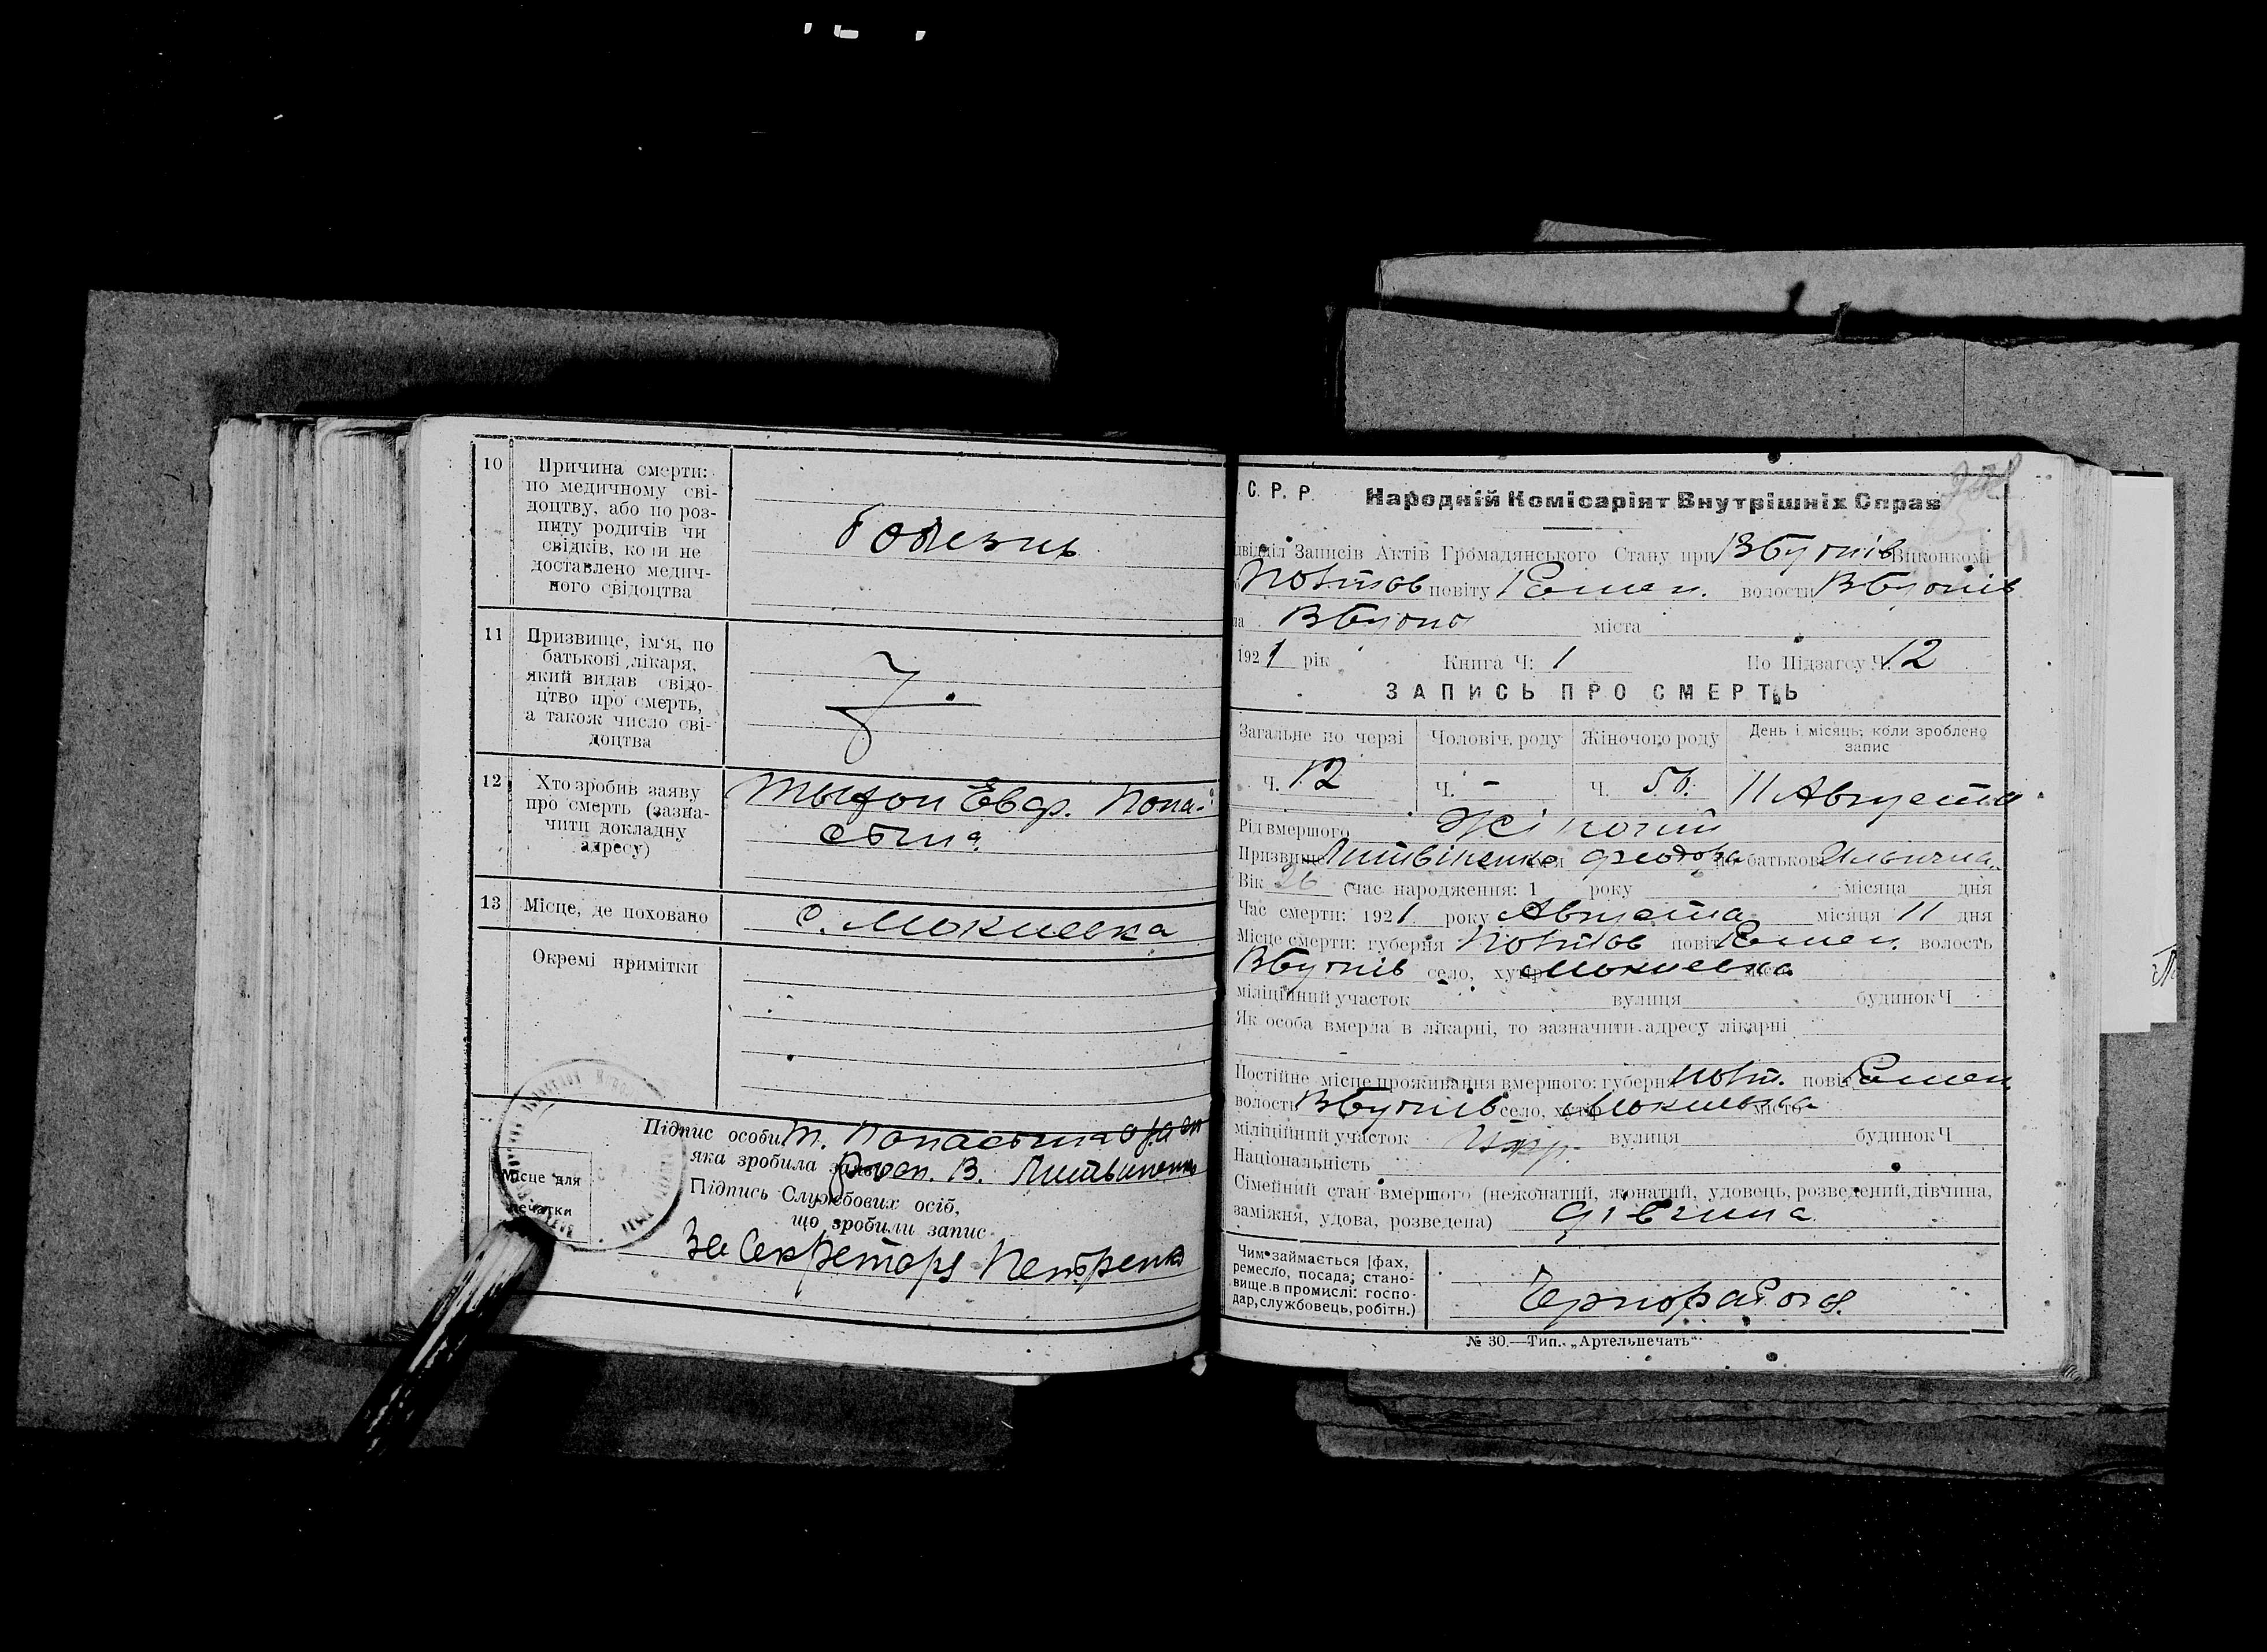 10 Причина смерти:
по медичному сві-
доцтву, або по роз-
питу родичів чи
свідків, коли не
доставлено медич-
ного свідоцтва
болезнь
11 Призвище, ім'я, по
батькові лікаря,
який видав свідо-
цтво про смерть,
а також число сві-
доцтва
12 Хто зробив заяву
про смерть (зазна-
чити докладну
адресу)
Евдр. Попа-
13 Місце, де поховано
с. Мокиевка
Окремі примітки
Місце для
печатки
Підпис особи
яка зробила заяву
В. Литвиненко
Підпись Службових осіб,
що зробили запис
За Секретаря Петренко
С. Р. Р. Народній Комісаріят Внутрішніх Справ
Підвідділ Записів Актів Громадянського Стану при Вбутнів Виконкомі
Полтов повіту Ромен. волости Вбутнів
міста
1921 рік Книга Ч: 1 По Підзагсу Ч. 12
ЗАПИСЬ ПРО СМЕРТЬ
Загальне по черзі Чоловіч. роду Жіночого роду День і місяць, коли зроблено
запис
Ч. 12 Ч. - Ч. 11 Августа
Рід вмершого Жіночий
Призвище Литвіненко ім'я Феодора по батькові Ильична
Вік 26 (час народження: 1 року місяца дня
Час смерти: 1921 року Августа місяця 11 дня
Місце смерти: губерня Полтов повіт Ромен. волость
Вбутнів село, хутір Мокиевка місто
міліційний участок вулиця будинок Ч
Як особа вмерла в лікарні, то зазначити адресу лікарні
Постійне місце проживання вмершого: губерня Полт. повіт Ромен.
волость Вбутнів село, хутір Мокиевка місто
міліційний участок вулиця будинок Ч
Національність Укр.
Сімейний стан вмершого (неженатий, жонатий, удовець, розведений, дівчина,
заміжня, удова, розведена) дівчина
Чим займається [фах,
ремесло, посада; стано-
вище в промислі: госпо-
дар, службовець, робітн.)
Чернорабоч.
№ 30.—Тип. „Артельпечать“